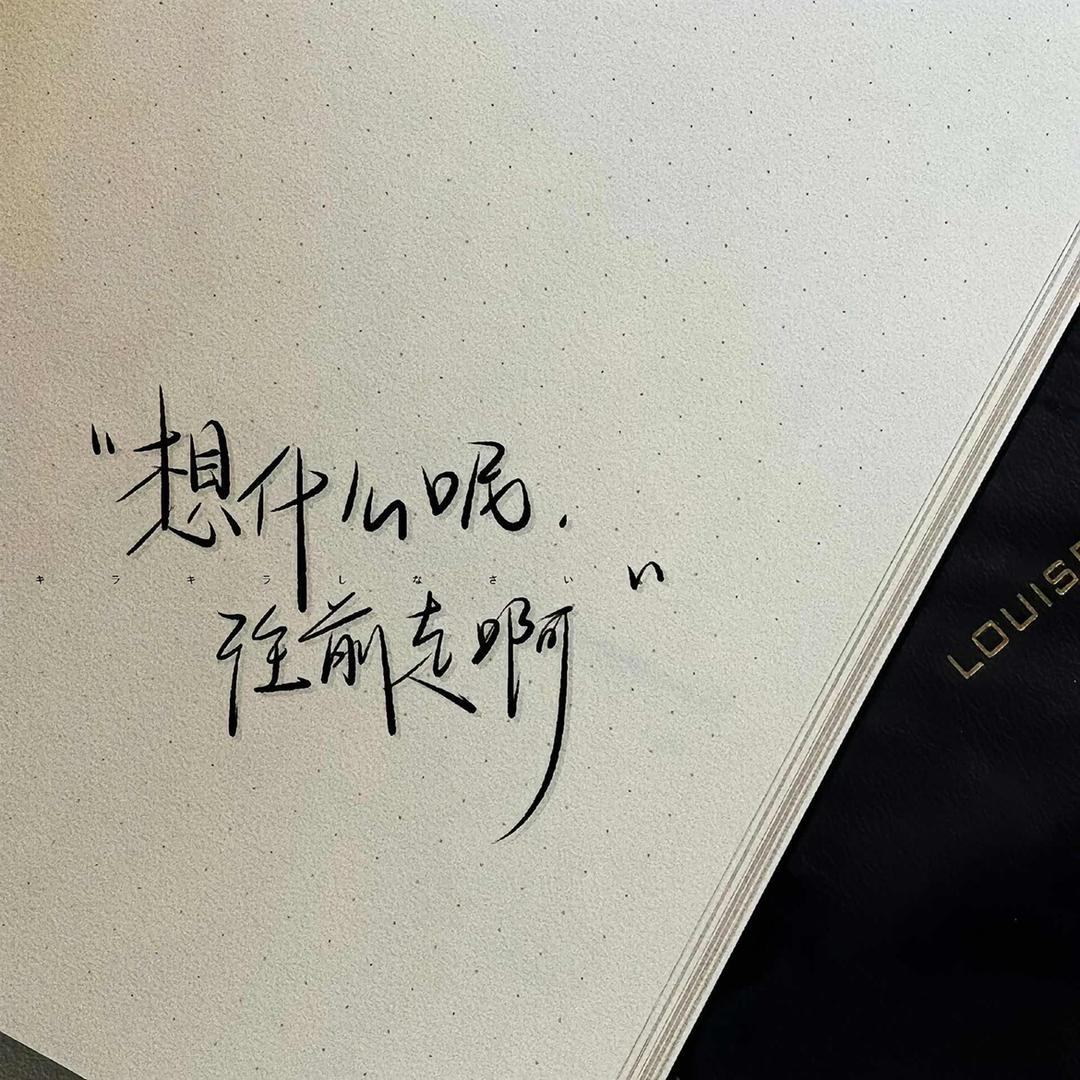 "想什么呢.
キラキラしなさい
往前走啊"
LOUISE